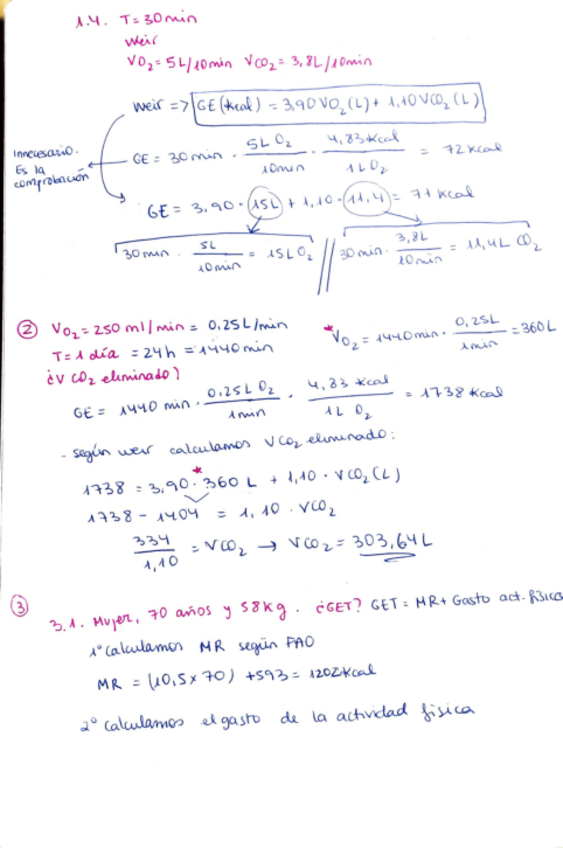 1.4. T=30min
Weir
VO₂=5L/10min VCO₂=3,8L/10min
Weir => GE(Kcal) = 3,90 VO₂(L) + 1,10 VCO₂(L)
Innecesario.
Es la
comprobación
GE = 30min · 5L O₂/10min · 4,83Kcal/1L O₂ = 72Kcal
GE = 3,90 · 15L + 1,10 · 11,4 = 71Kcal
30min · 5L/10min = 15L O₂ // 30min · 3,8L/10min = 11,4L CO₂
② VO₂=250 ml/min = 0,25L/min
*VO₂ = 1440min · 0,25L/1min = 360L
T=1 día = 24h = 1440min
¿V CO₂ eliminado?
GE = 1440 min · 0,25L O₂/1min · 4,83 Kcal/1L O₂ = 1738Kcal
- según weir calculamos VCO₂ eliminado:
*
1738 = 3,90 · 360 L + 1,10 · VCO₂(L)
1738 - 1404 = 1,10 · VCO₂
334/1,10 = VCO₂ → VCO₂ = 303,64L
③
3.1. Mujer, 70 años y 58Kg. ¿GET? GET = MR + Gasto act. física
1º Calculamos MR según FAO
MR = (10,5 x 70) + 593 = 1202Kcal
2º Calculamos el gasto de la actividad física